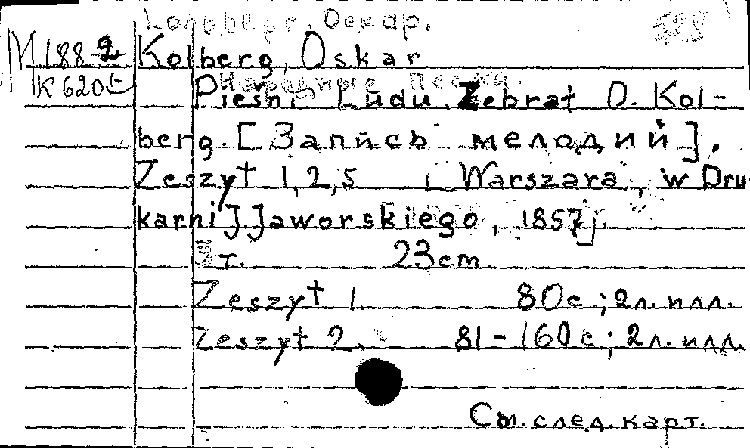 Кольберг, Оскар.
M188-2 Kolberg, Oskar
K620t Народные песни.
Pieśni Ludu. Zebrat O. Kol-
berg. [Запись мелодий].
Zeszyt 1,2,5 i Warszara, w Dru
karni J. Jaworskiego, 1857j.
т. 23cm
Zeszyt 1. 80с; 2л. илл.
Zeszyt 2. 81-160с; 2л. илл.
См. след. карт.